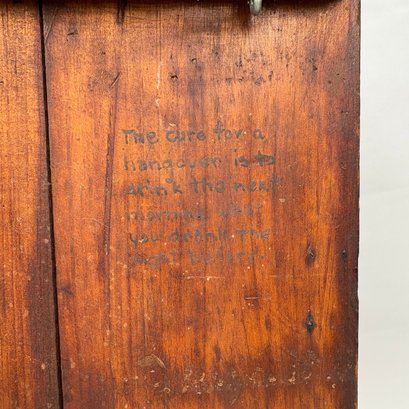 The cure for a
hangover is to
drink the next
morning what
you drank the
night before.